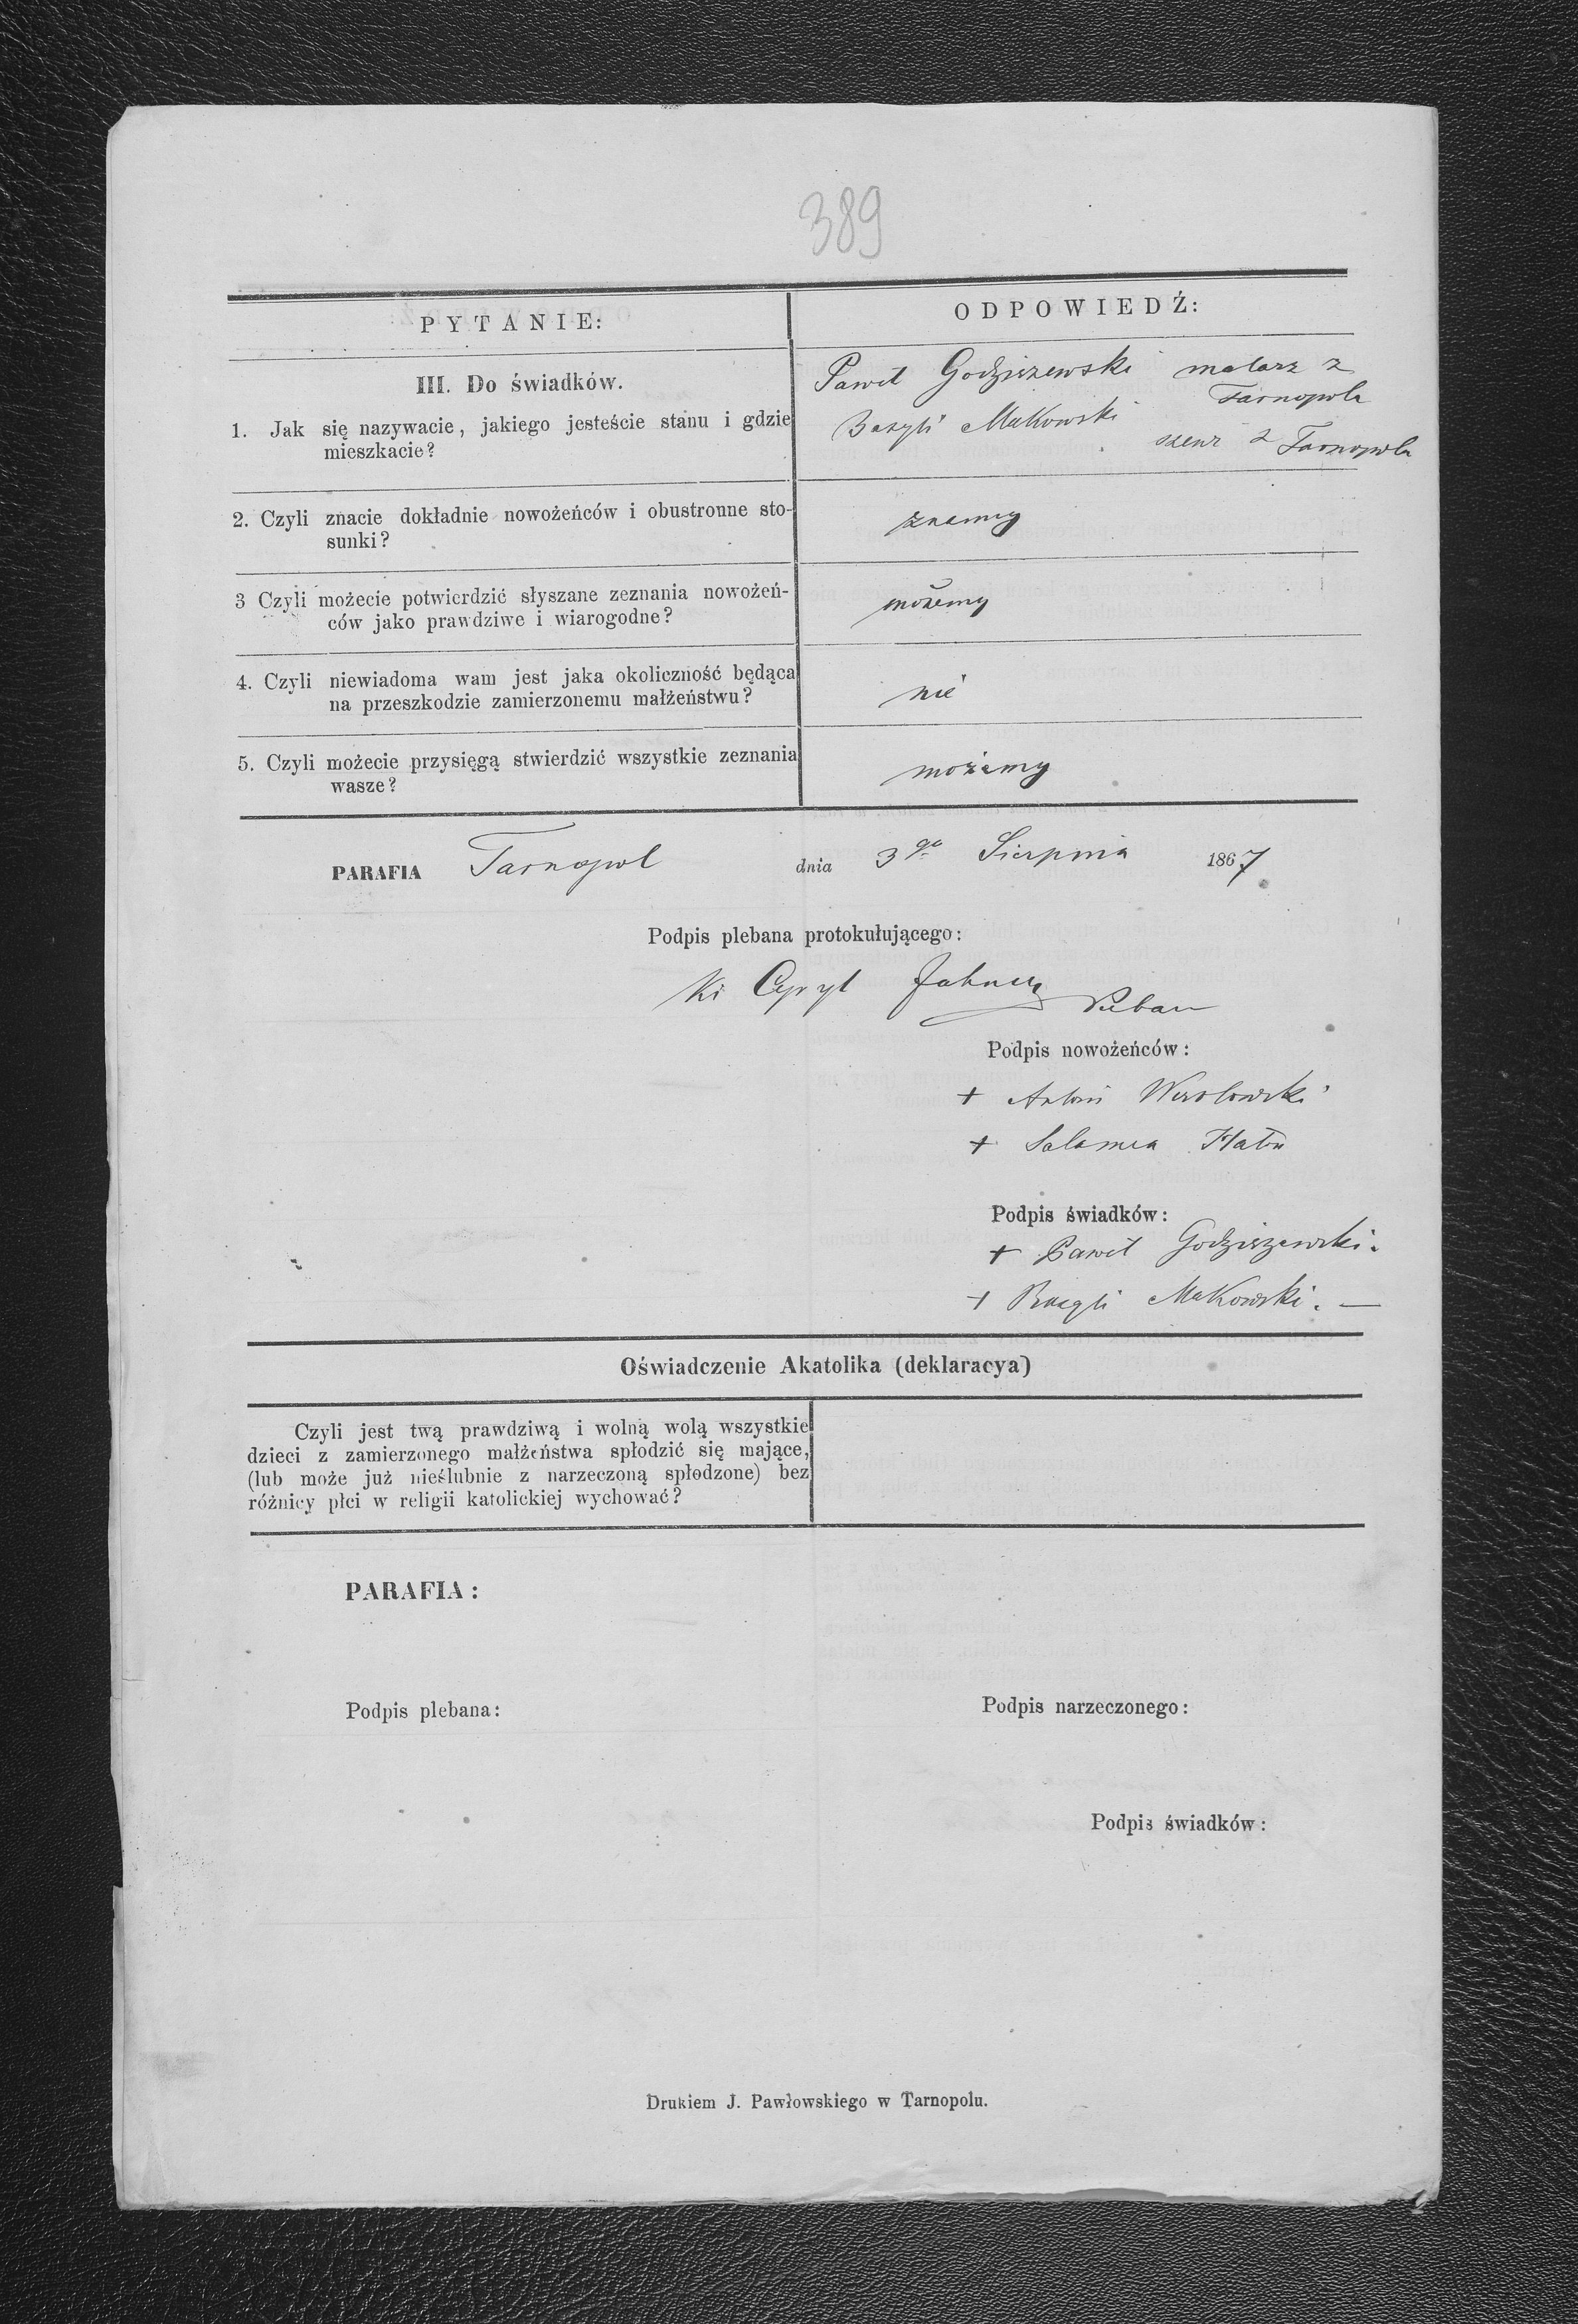 389
PYTANIE:
ODPOWIEDŹ:
III. Do świadków.
1. Jak się nazywacie, jakiego jesteście stanu i gdzie
mieszkacie?
Paweł Godziszewski malarz z
Tarnopola
Bazyli Makowski szewc z Tarnopola
2. Czyli znacie dokładnie nowożeńców i obustronne sto-
sunki?
znamy
3 Czyli możecie potwierdzić słyszane zeznania nowożeń-
ców jako prawdziwe i wiarogodne?
możemy
4. Czyli niewiadoma wam jest jaka okoliczność będąca
na przeszkodzie zamierzonemu małżeństwu?
nie
5. Czyli możecie przysięgą stwierdzić wszystkie zeznania
wasze?
możemy
PARAFIA Tarnopol dnia 3go Sierpnia 1867
Podpis plebana protokułującego:
Cyryl Pleban
Podpis nowożeńców:
+ Antoni
+ Salomea
Podpis świadków:
+ Paweł Godziszewski.
+ Bazyli Makowski. —
Oświadczenie Akatolika (deklaracya)
Czyli jest twą prawdziwą i wolną wolą wszystkie
dzieci z zamierzonego małżeństwa spłodzić się mające,
(lub może już nieślubnie z narzeczoną spłodzone) bez
różnicy płci w religii katolickiej wychować?
PARAFIA:
Podpis plebana:
Podpis narzeczonego:
Podpis świadków:
Drukiem J. Pawłowskiego w Tarnopolu.